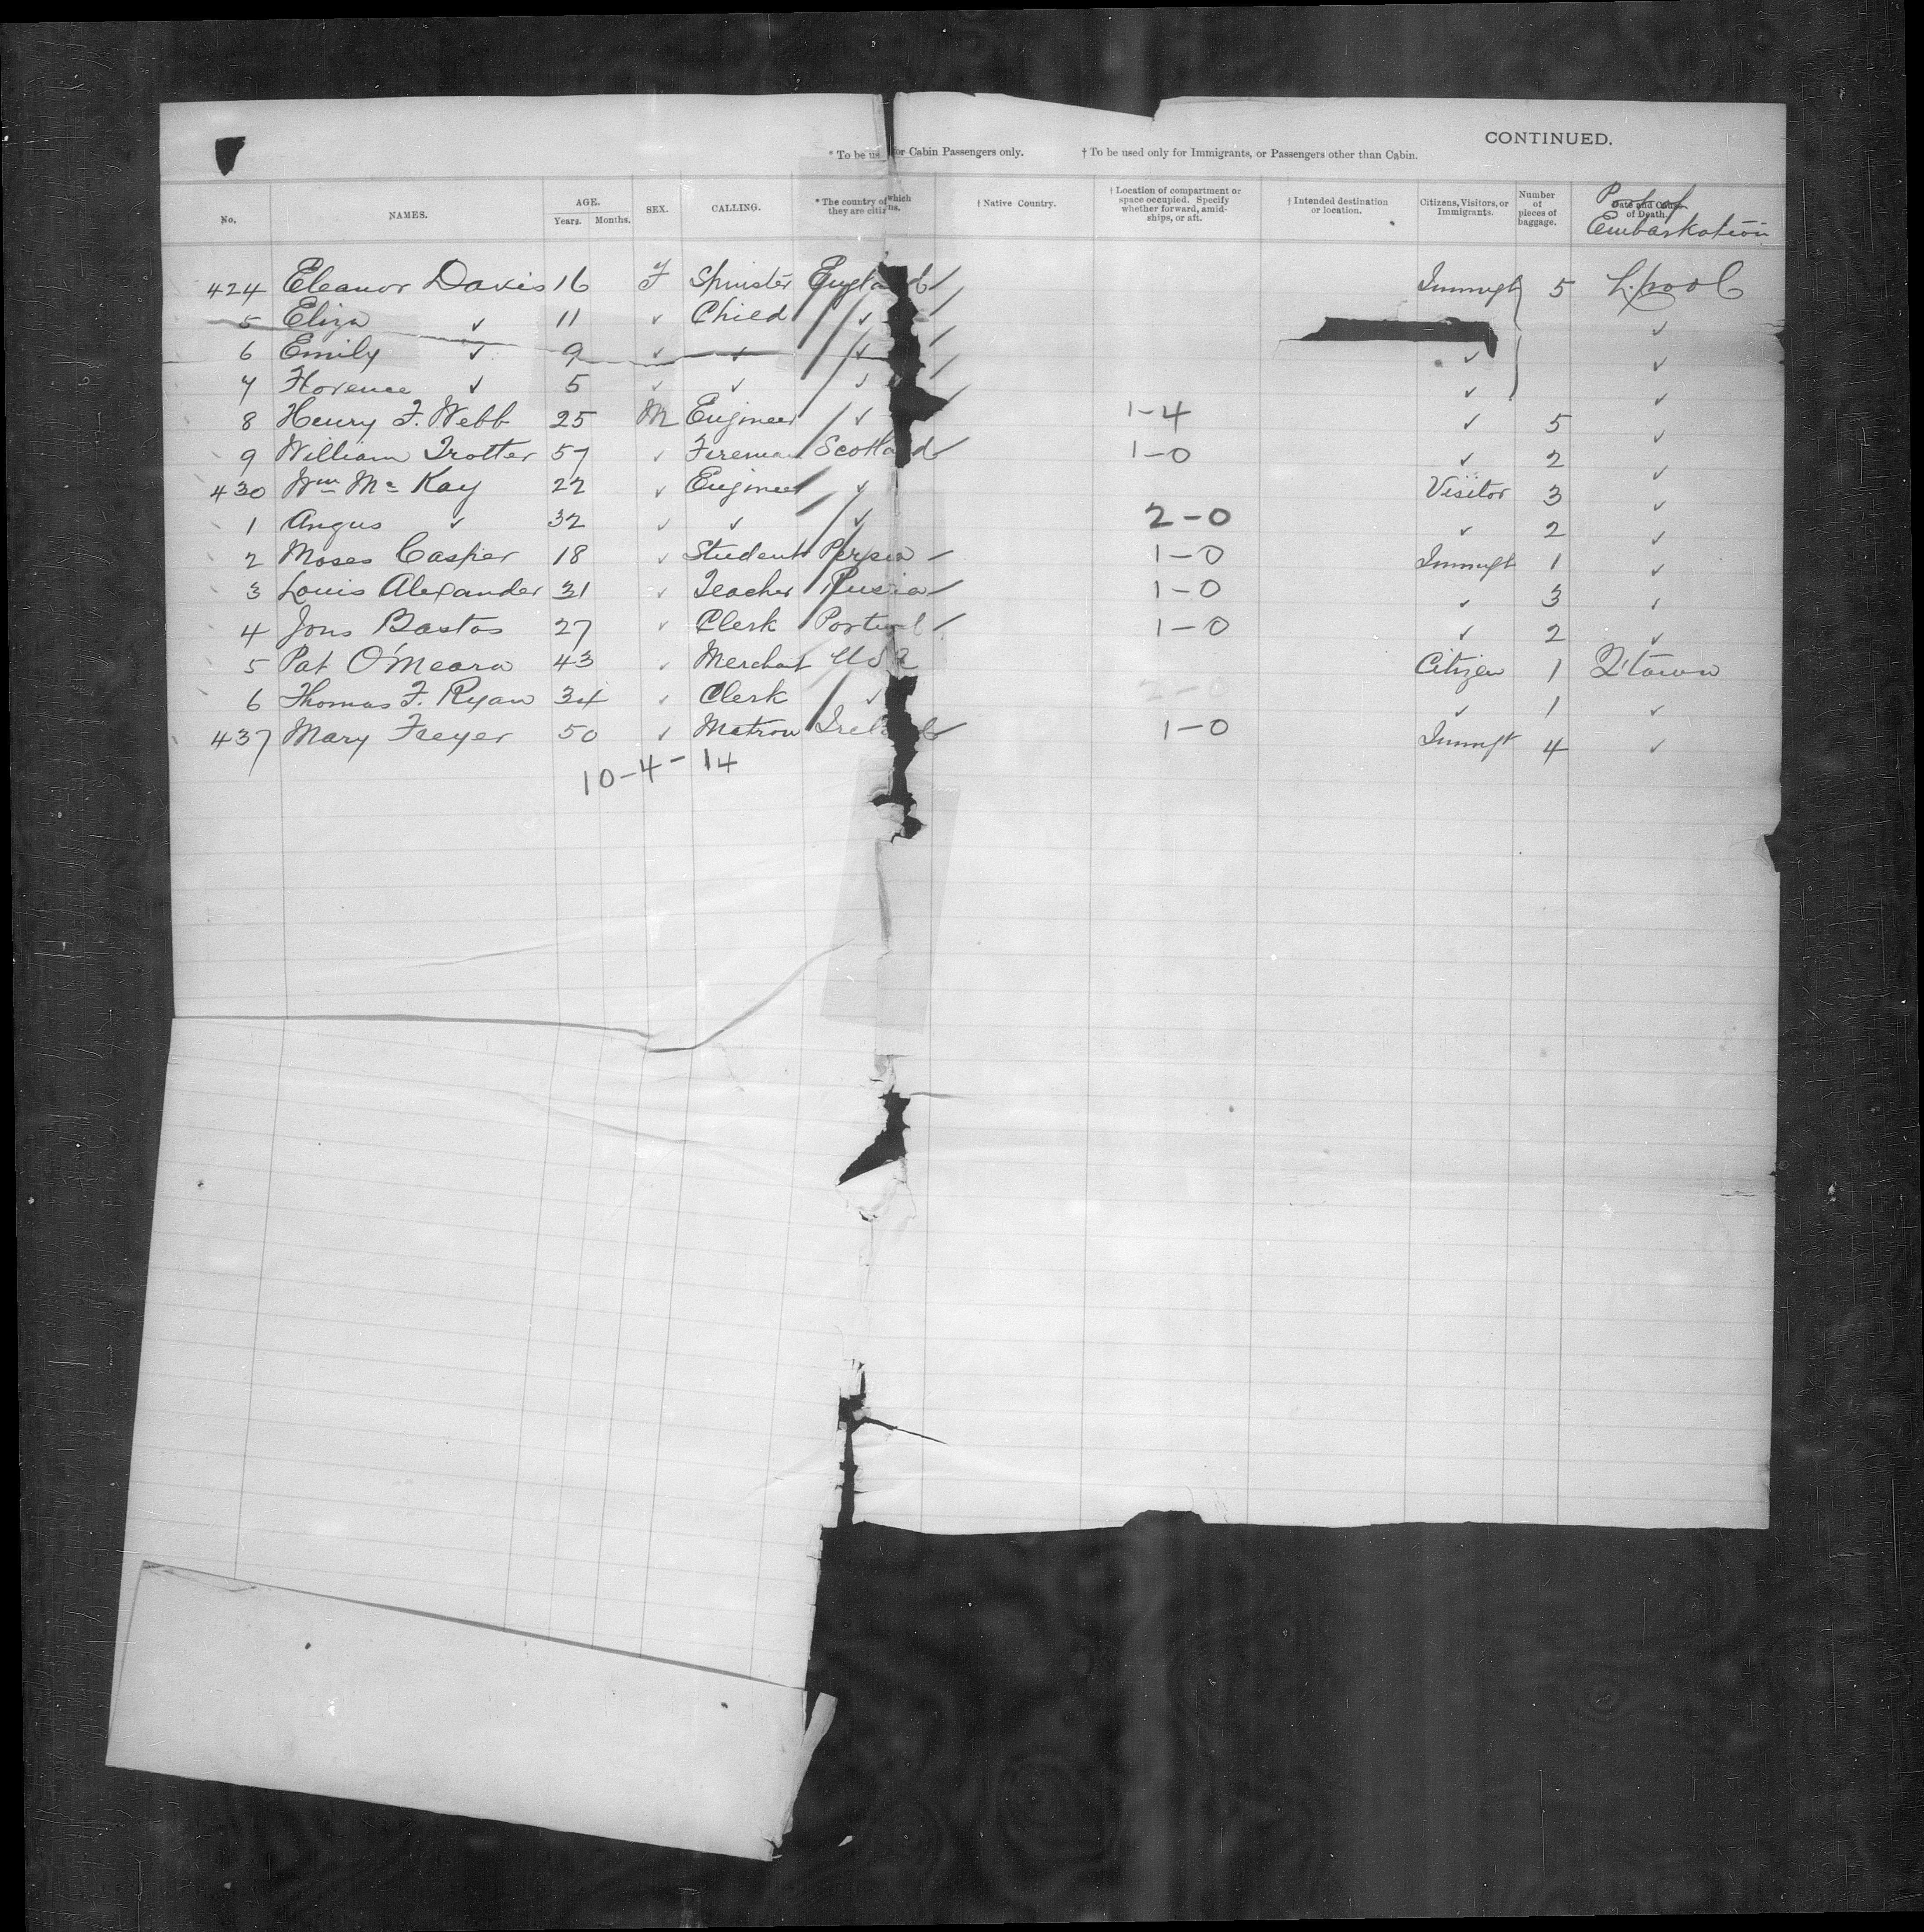 CONTINUED.
* To be us for Cabin Passengers only. † To be used only for Immigrants, or Passengers other than Cabin.
No. NAMES. AGE. Years. Months. SEX. CALLING. * The country of which they are citizens. † Native Country. † Location of compartment or space occupied. Specify whether forward, amidships, or aft. † Intended destination or location. Citizens, Visitors, or Immigrants. Number of pieces of baggage. Date and Cause of Death. Port of Embarkation
424 Eleanor Davis 16 F Spinster England Immigt 5 L.pool
5 Eliza ✓ 11 ✓ Child ✓ ✓
6 Emily ✓ 9 ✓ ✓ ✓ ✓ ✓
7 Florence ✓ 5 ✓ ✓ ✓ ✓ ✓
8 Henry F. Webb 25 M Engineer ✓ 1-4 ✓ 5 ✓
9 William Trotter 57 ✓ Fireman Scotland 1-0 ✓ 2 ✓
430 Wm Mc Kay 22 ✓ Engineer ✓ Visitor 3 ✓
1 Angus ✓ 32 ✓ ✓ ✓ 2-0 ✓ 2 ✓
2 Moses Casper 18 ✓ Student Persia 1-0 Immigt 1 ✓
3 Louis Alexander 31 ✓ Teacher Russia 1-0 ✓ 3 ✓
4 Jons Bastos 27 ✓ Clerk Portugal 1-0 ✓ 2 ✓
5 Pat O'Meara 43 ✓ Merchant USA Citizen 1 Q'town
6 Thomas F. Ryan 34 ✓ Clerk ✓ 2-0 ✓ 1 ✓
437 Mary Freyer 50 ✓ Matron Ireland 1-0 Immgt 4 ✓
10-4-14